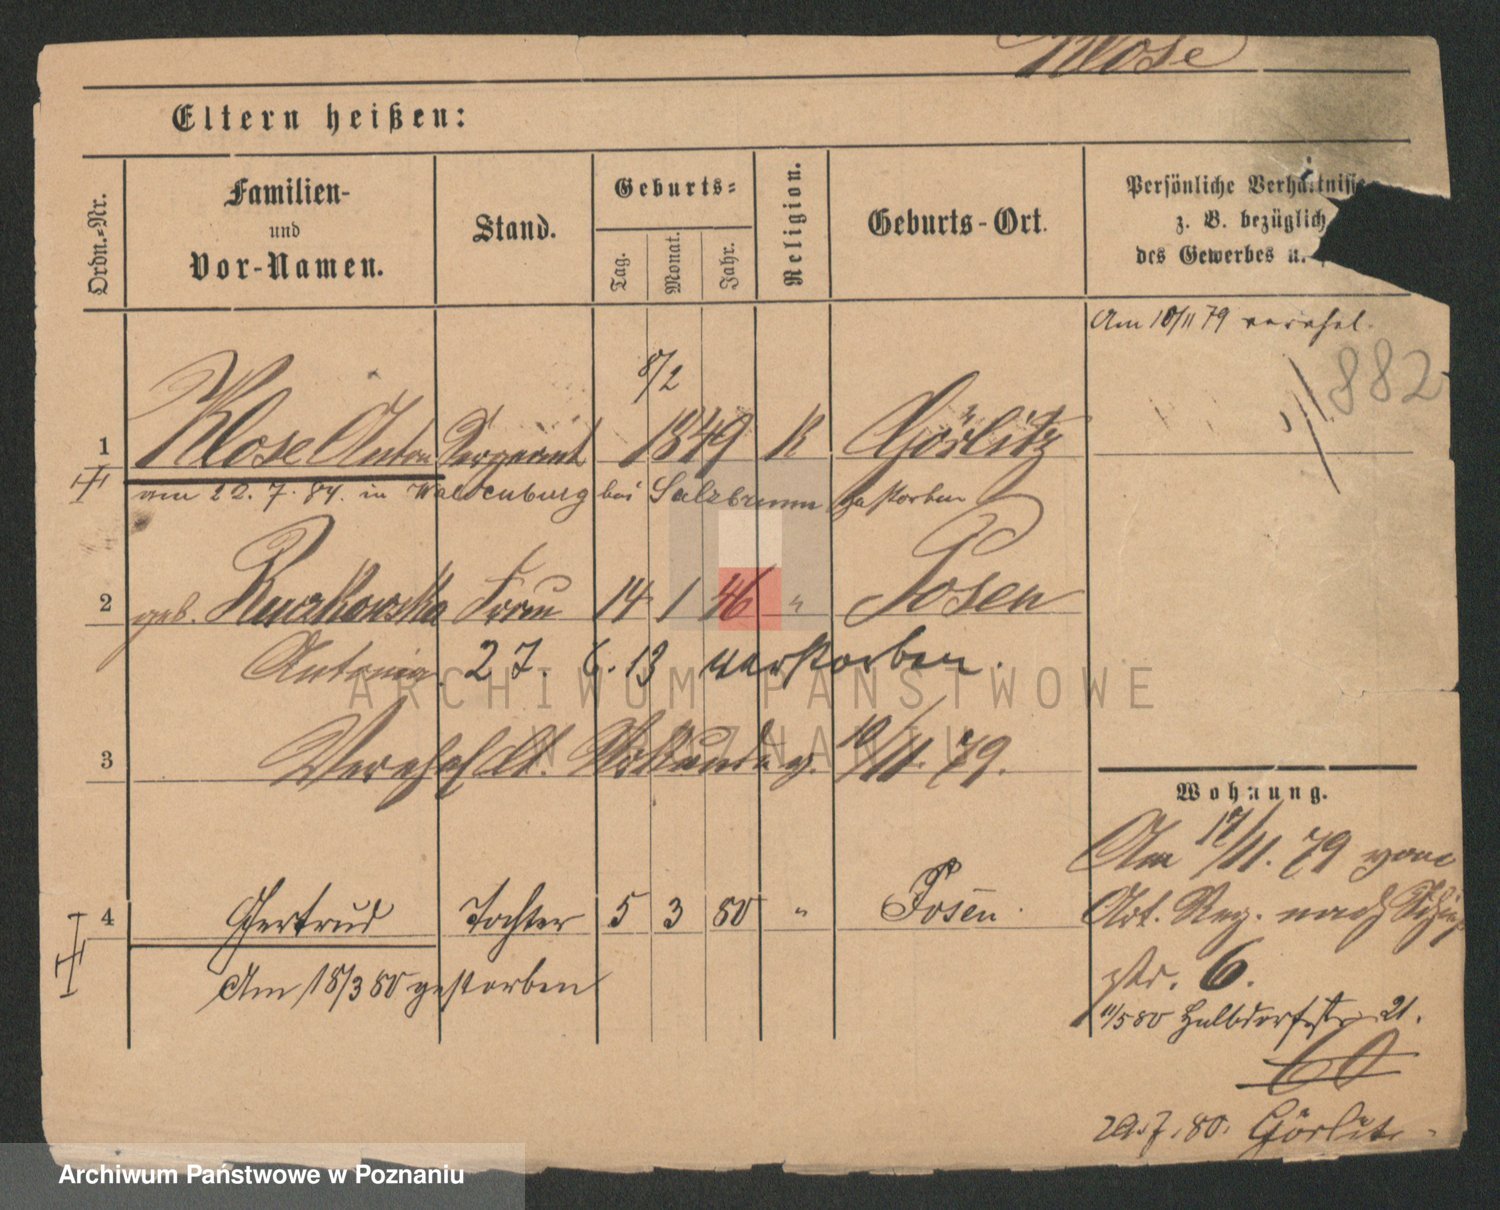 Klose
Eltern heißen:
Ordn.-Nr.
Familien-
und
Vor-Namen.
Stand.
Geburts-
Tag.
Monat.
Jahr.
Religion.
Geburts-Ort.
Persönliche Verhältnisse
z. B. bezüglich
des Gewerbes u.
Am 10/11 79 verehel.
882
8/2
1 Klose Anton Sergeant 1849 K Görlitz
am 22. 7. 84. in Waldenburg bei Salzbrunn gestorben
2 geb. Ruczkowska Frau 14 1 46 " Posen
Antonie 27. 6. 13 verstorben.
3 Verehel. lt. Urkunde v. 10/11. 79.
Wohnung.
Am 17/11. 79 von
Art. Reg. nach
str. 6.
4 Gertrud Tochter 5 3 80 " Posen
Am 18/3 80 gestorben
11/5 80 Halbdorfstr. 21.
60
29.7.80. Görlitz
ARCHIWUM PAŃSTWOWE
W POZNANIU
Archiwum Państwowe w Poznaniu